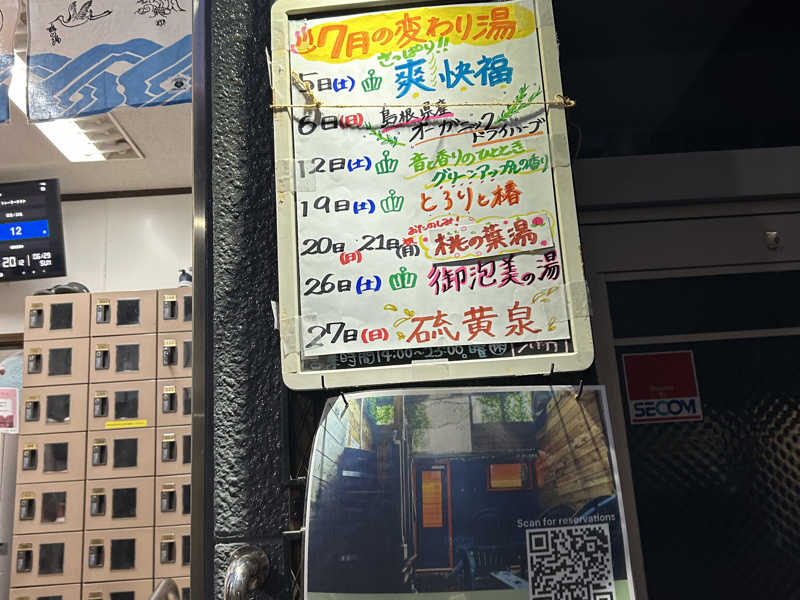 7月の変わり湯
さっぱり!!
5日(土) 爽快福
6日(日) 島根県産
オーガニック
ドライハーブ
12日(土) 音と香りのひととき
グリーンアップルの香り
19日(土) とろりと椿
お楽しみ!
20日(日) 21日(月) 桃の葉湯
26日(土) 御泡美の湯
27日(日) 硫黄泉
時間14:00~23:00
12
SECOM
Scan for reservations